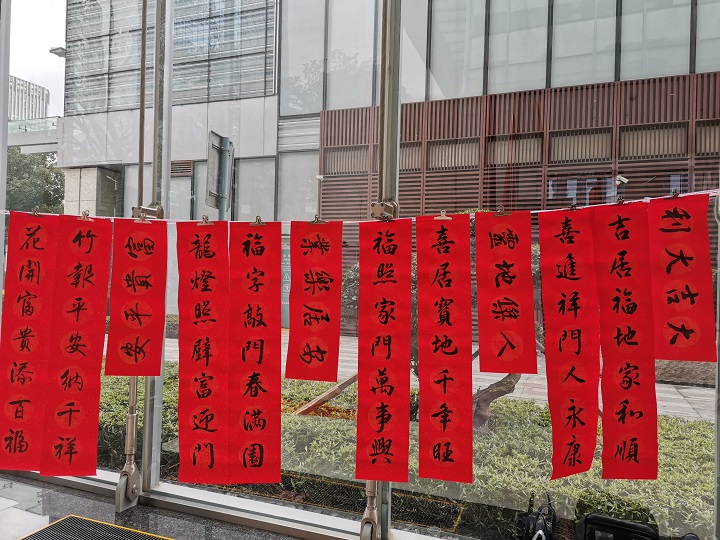 利大吉大
吉居福地家和順
喜進祥門人永康
靈地傑人
喜居寶地千年旺
福照家門萬事興
業樂居安
福字敲門春滿園
龍燈照壁富迎門
富貴平安
竹報平安納千祥
花開富貴添百福